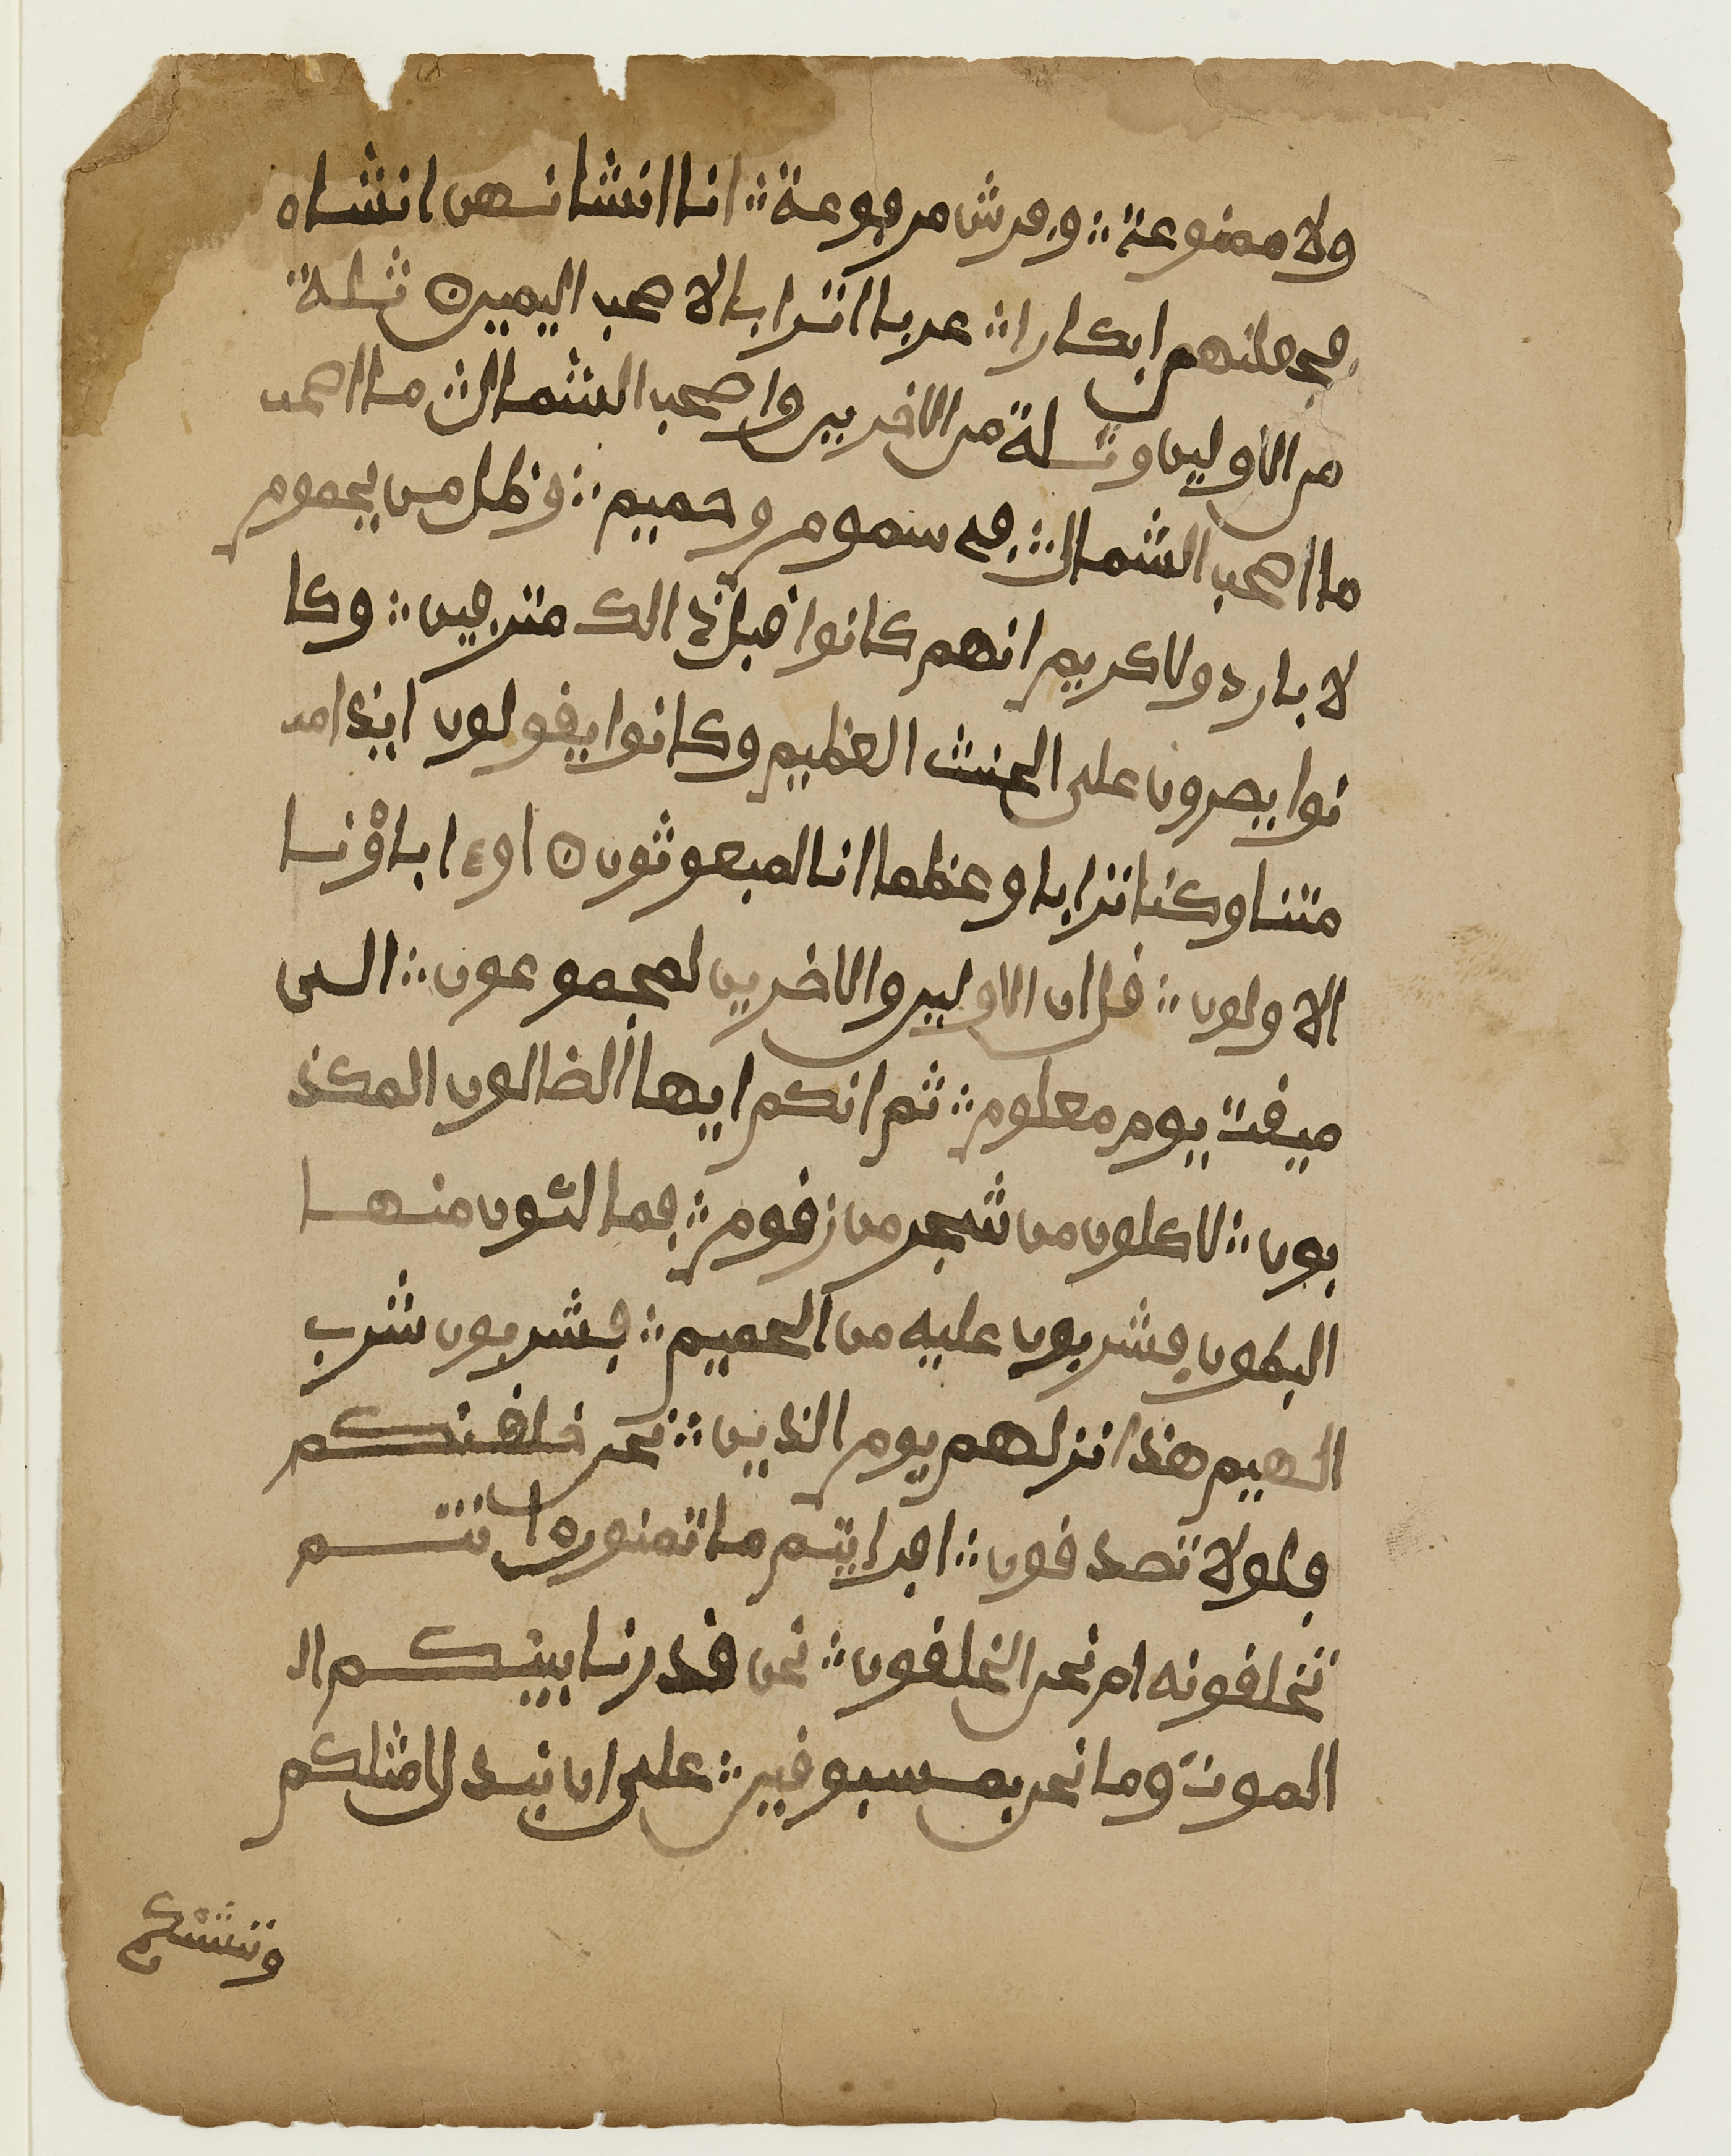 ولا ممنوعة ؞ وڢرش مرڢوعة ؞ انا انشانهن انشاه
ڢجعلنهم ابكارا ؞ عربا اترابا لاصحب اليمين ه ثلة
من الاولين وثلة من الاخرين واصحب الشمال ؞ ما اصحب
ما اصحب الشمال ؞ ڢے سموم وحميم ؞ وظل من يحموم
لا بارد ولا كريم انهم كانوا ڧبل ذالك مترڢين ؞ وكا
نوا يصرون على الحنث العظيم وكانوا يڧولون ايذا مـ
متنا وكنا ترابا وعظما انا لمبعوثون ه اوء اباؤنا
الاولون ؞ ڧل ان الاولين والاخرين لمجموعون ؞ الى
ميڧت يوم معلوم ؞ ثم انكم ايها الضالون المكذ
بون ؞ لاكلون من شجر من زڧوم ؞ ڢمالئون منها
البطون ڢشربون عليه من الحميم ؞ ڢشربون شرب
الهيم هذا نزلهم يوم الذين ؞ نحن خلڧنكم
ڢلولا تصدڧون ؞ اڢرايتم ما تمنون ه ا نتم
تخلڧونه ام نحن الخلڧون ؞ نحن ڧدرنا بينكم ال
الموت وما نحن بمسبوڧين ؞ على ان نبدل امثلكم
وننشئكم